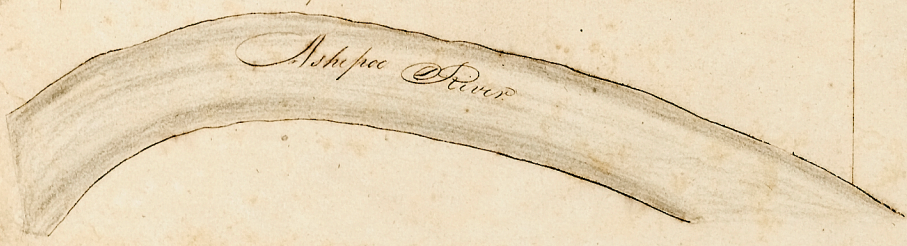 Ashepoo River